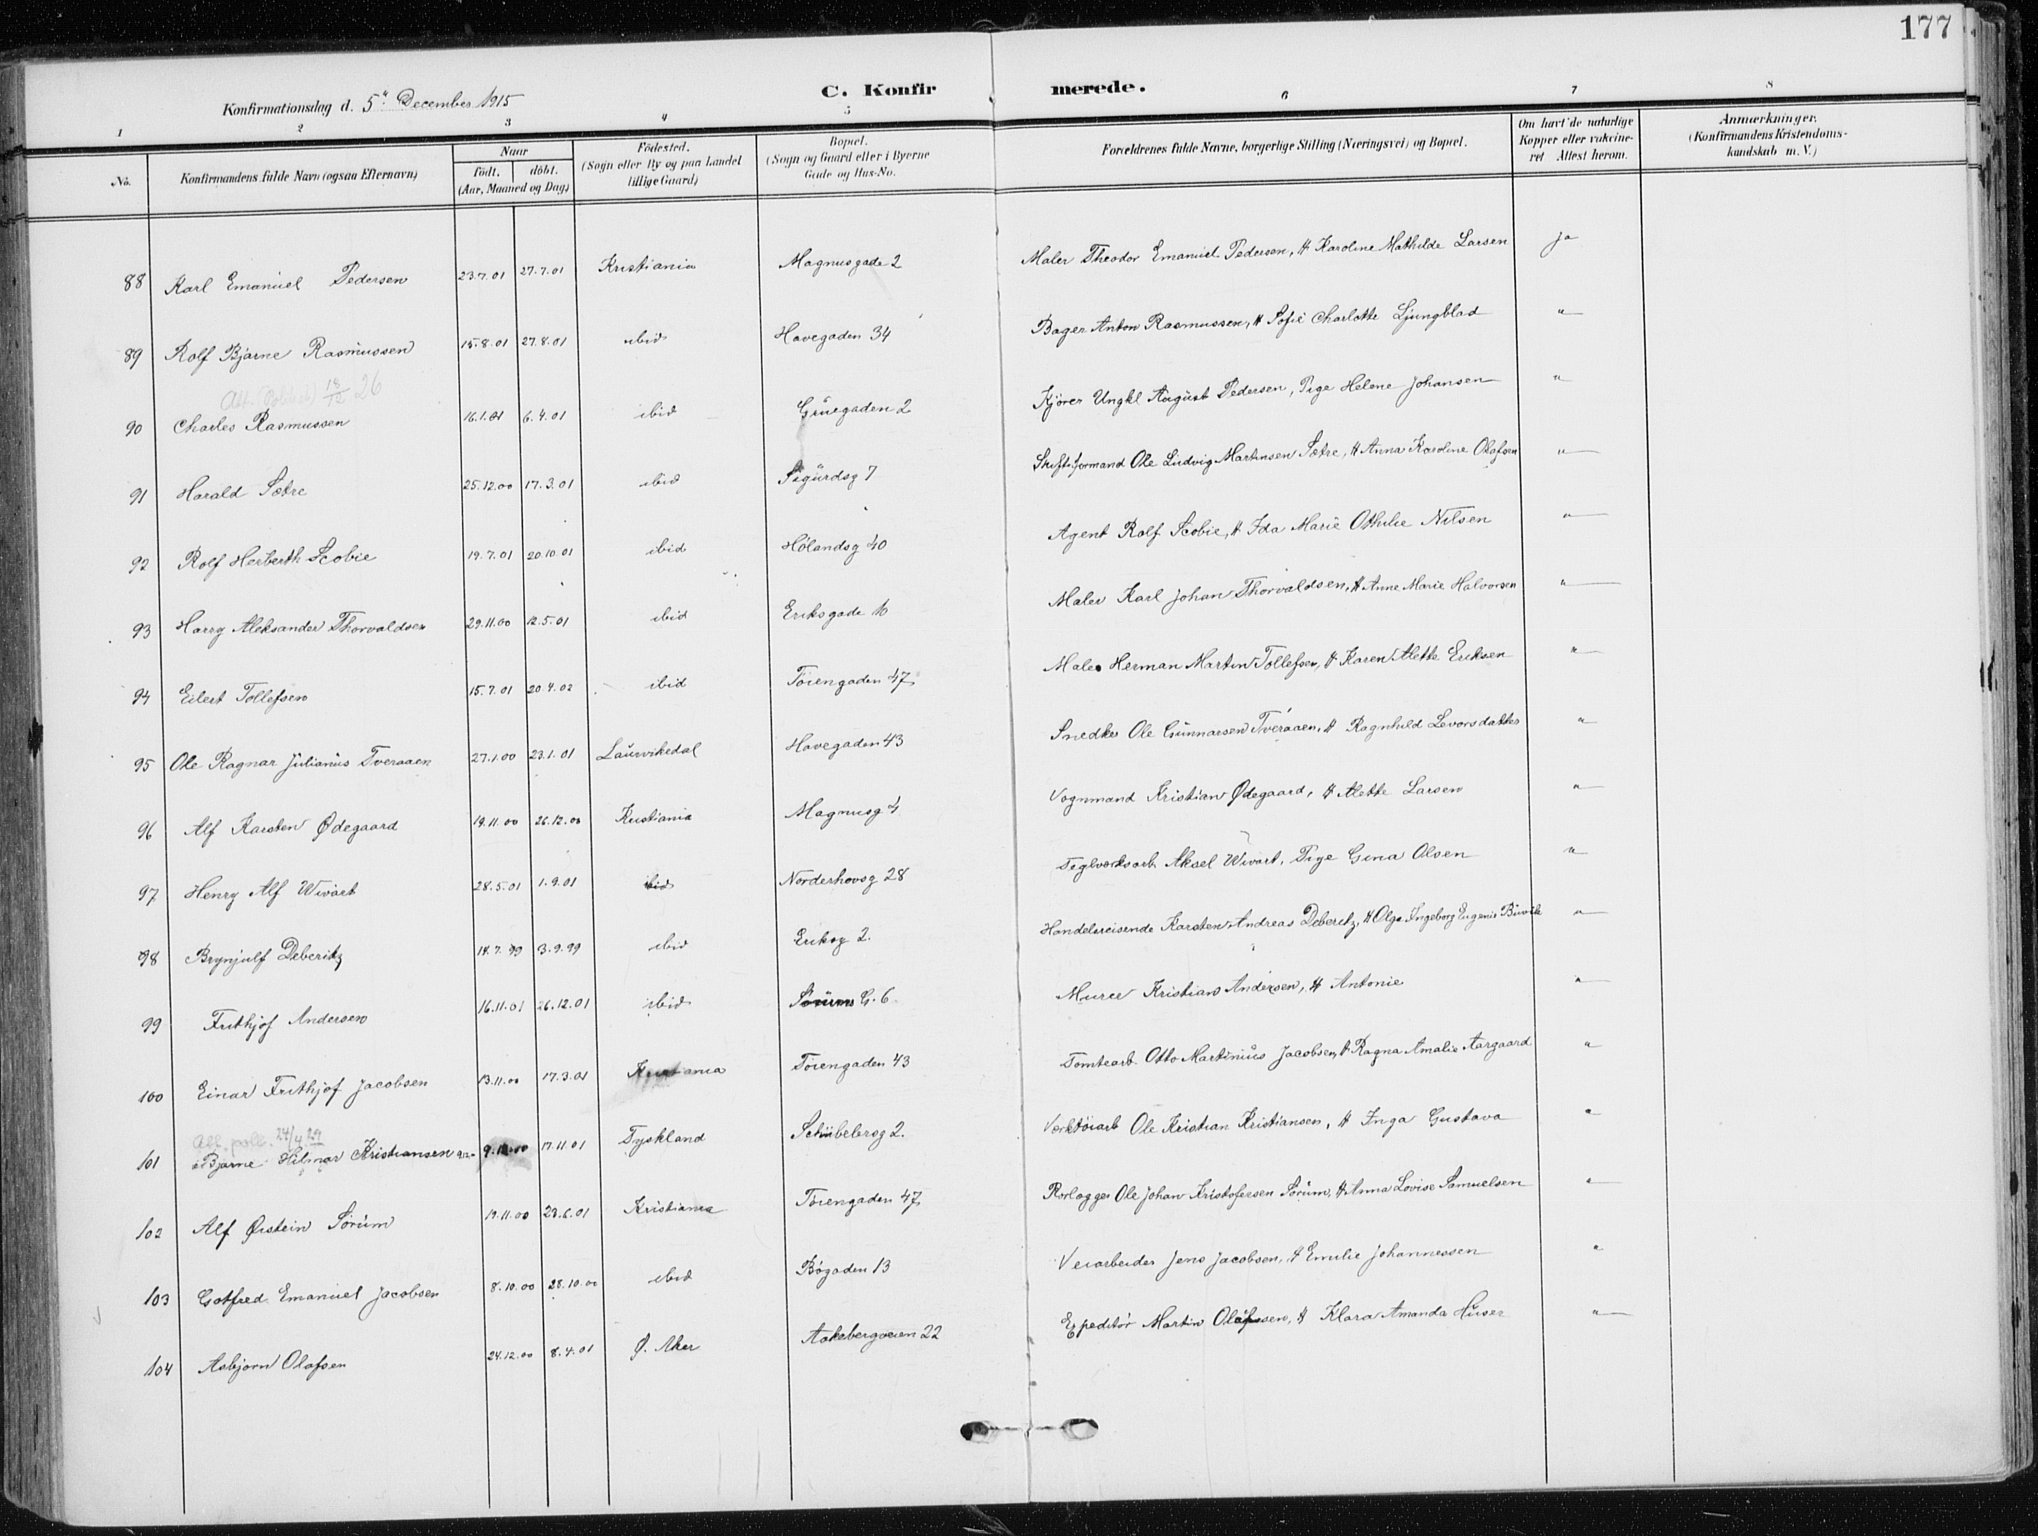 177
Konfirmationsdag d. 5" December 1915
C. Konfir merede.
1 2 3 4 5 6 7 8
No.
Konfirmandens fulde Navn (ogsaa Efternavn)
Naar
født. døbt.
(Aar, Maaned og Dag)
Fødested.
(Sogn eller By og paa Landet
tillige Gaard)
Bopæl.
(Sogn og Gaard eller i Byerne
Gade og Hus-No.
Forældrenes fulde Navne, borgerlige Stilling (Næringsvei) og Bopæl.
Om havt de naturlige
Kopper eller vakcine-
ret Attest herom.
Anmærkninger.
(Konfirmandens Kristendoms-
kundskab m. V.)
88 Karl Emanuel Pedersen 23.7.01 27.7.01 Kristiania Magnusgade 2 Maler Theodor Emanuel Pedersen, H Karoline Mathilde Larsen ja
89 Rolf Bjarne Rasmussen 15.8.01 27.8.01 ibid Havegaden 34 Bager Anton Rasmussen, H Sofie Charlotte Ljungblad "
18/12 26
90 Charles Rasmussen 16.1.01 6.4.01 ibid Grüegaden 2 Kjører Ungkl August Pedersen, Pige Helene Johansen "
91 Harald Sætre 25.12.00 17.3.01 ibid Sigurdsg 7 Skiftsformand Ole Ludvig Martinsen Sætre, H Anna Karoline Olafsen "
92 Rolf Herberth Scobie 19.7.01 20.10.01 ibid Hølandsg 40 Agent Rolf Scobie, H Ida Marie Othilie Nilsen "
93 Harry Aleksander Thorvaldsen 29.11.00 12.5.01 ibid Eriksgade 10 Maler Karl Johan Thorvaldsen, H Anne Marie Halvorsen "
94 Eilert Tollefsen 15.7.01 20.4.02 ibid Tøiengaden 47 Maler Herman Martin Tollefsen, H Karen Alette Eriksen "
95 Ole Ragnar Julianus Tveraaen 27.1.00 23.1.01 Laurvikedal Havegaden 43 Snedker Ole Gunnarsen Tveraaen, H Ragnhild Levorsdatter "
96 Alf Karsten Ødegaard 19.11.00 26.12.00 Kristiania Magnusg 4 Vognmand Kristian Ødegaard, H Alette Larsen "
97 Henry Alf Wivart 28.5.01 1.9.01 ibid Norderhovsg 28 Teglværksarb. Aksel Wivart, Pige Gina Olsen "
98 Brynjulf Deberitz 14.7.99 3.9.99 ibid Eriksg 2. Handelsreisende Karsten Andreas Deberitz, H Olga Ingeborg Eugenie Buvik "
99 Frithjof Andersen 16.11.01 26.12.01 ibid Sørum G. 6 Murer Kristian Andersen, H Antonie "
100 Einar Frithjof Jacobsen 13.11.00 17.3.01 Kristiania Tøiengaden 43 Tomtearb. Otto Martinius Jacobsen, H Ragna Amalie Aargaard "
Att. poli. 24/4 29
101 Bjarne Hilmar Kristiansen 9.12.00 17.11.01 Tyskland Schübelersg 2. Verktøiarb Ole Kristian Kristiansen, H Inga Gustava "
102 Alf Øistein Sørum 19.11.00 23.6.01 Kristiania Tøiengaden 47 Rørlægger Ole Johan Kristofersen Sørum, H Anna Lovise Samuelsen "
103 Gotfred Emanuel Jacobsen 8.10.00 28.10.00 ibid Bøgaden 13 Veiarbeider Jens Jacobsen, H Emilie Johannessen "
104 Asbjørn Olafsen 24.12.00 8.4.01 Ø. Aker Aakebergveien 22 Expeditør Martin Olafssen, H Klara Amanda Huser "